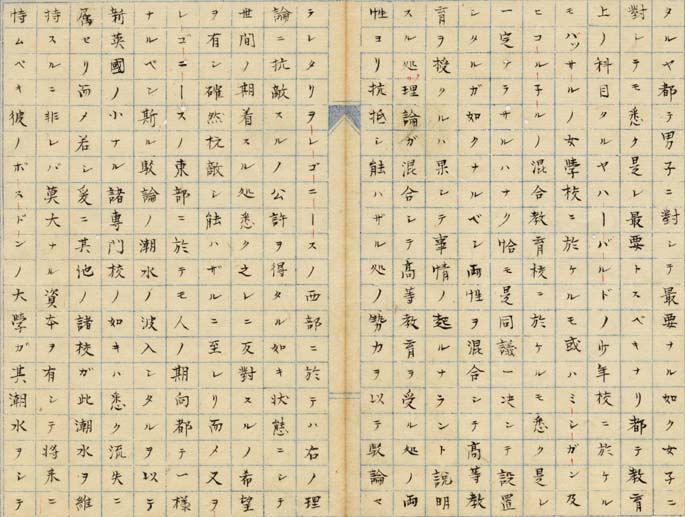 タルヤ都テ男子ニ對シテ最要ナル如ク女子ニ
對シテモ悉ク是レ最要トスベキナリ都テ教育
上ノ科目タルヤハーバルドノ少年校ニ於ケル
モバッサールノ女學校ニ於ケルモ或ハミシガン及
ヒコール子ルノ混合教育校ニ於ケルモ悉ク是レ
一定ソラサルハナク恰モ是同議一决シテ設置
シタルガ如クナルベシ両性ヲ混合シテ高等教
育ヲ授クルハ果シテ事情ノ起ルナラント説明
スル処ノ理論ガ混合シテ高等教育ヲ受ル処ノ両
性ヨリ抗抵シ能ハザル処ノ勢力ヲ以テ駁論マ
テレタリヲレゴニースノ西部ニ於テハ右ノ理
論ニ抗敵スルノ公許ヲ得タル如キ状態ニシテ
世間ノ期着スル処悉ク之レニ反對スルノ希望
ヲ有シ確然抗敵シ能ハザルニ至レリ而メ又ヲ
レゴニースノ東部ニ於テモ人ノ期向都テ一様
ナルベシ斯ル駁論ノ潮水ノ波入シタルヲ以テ
新英國ノ小ナル諸専門校ノ如キハ悉ク流失ニ
属セリ而メ若シ爰ニ其他ノ諸校ガ此潮水ヲ維
持スルニ非レバ莫大ナル資本ヲ有シテ将来ニ
恃ムベキ彼ノボーストーンノ大學ガ其潮水ヲシテ